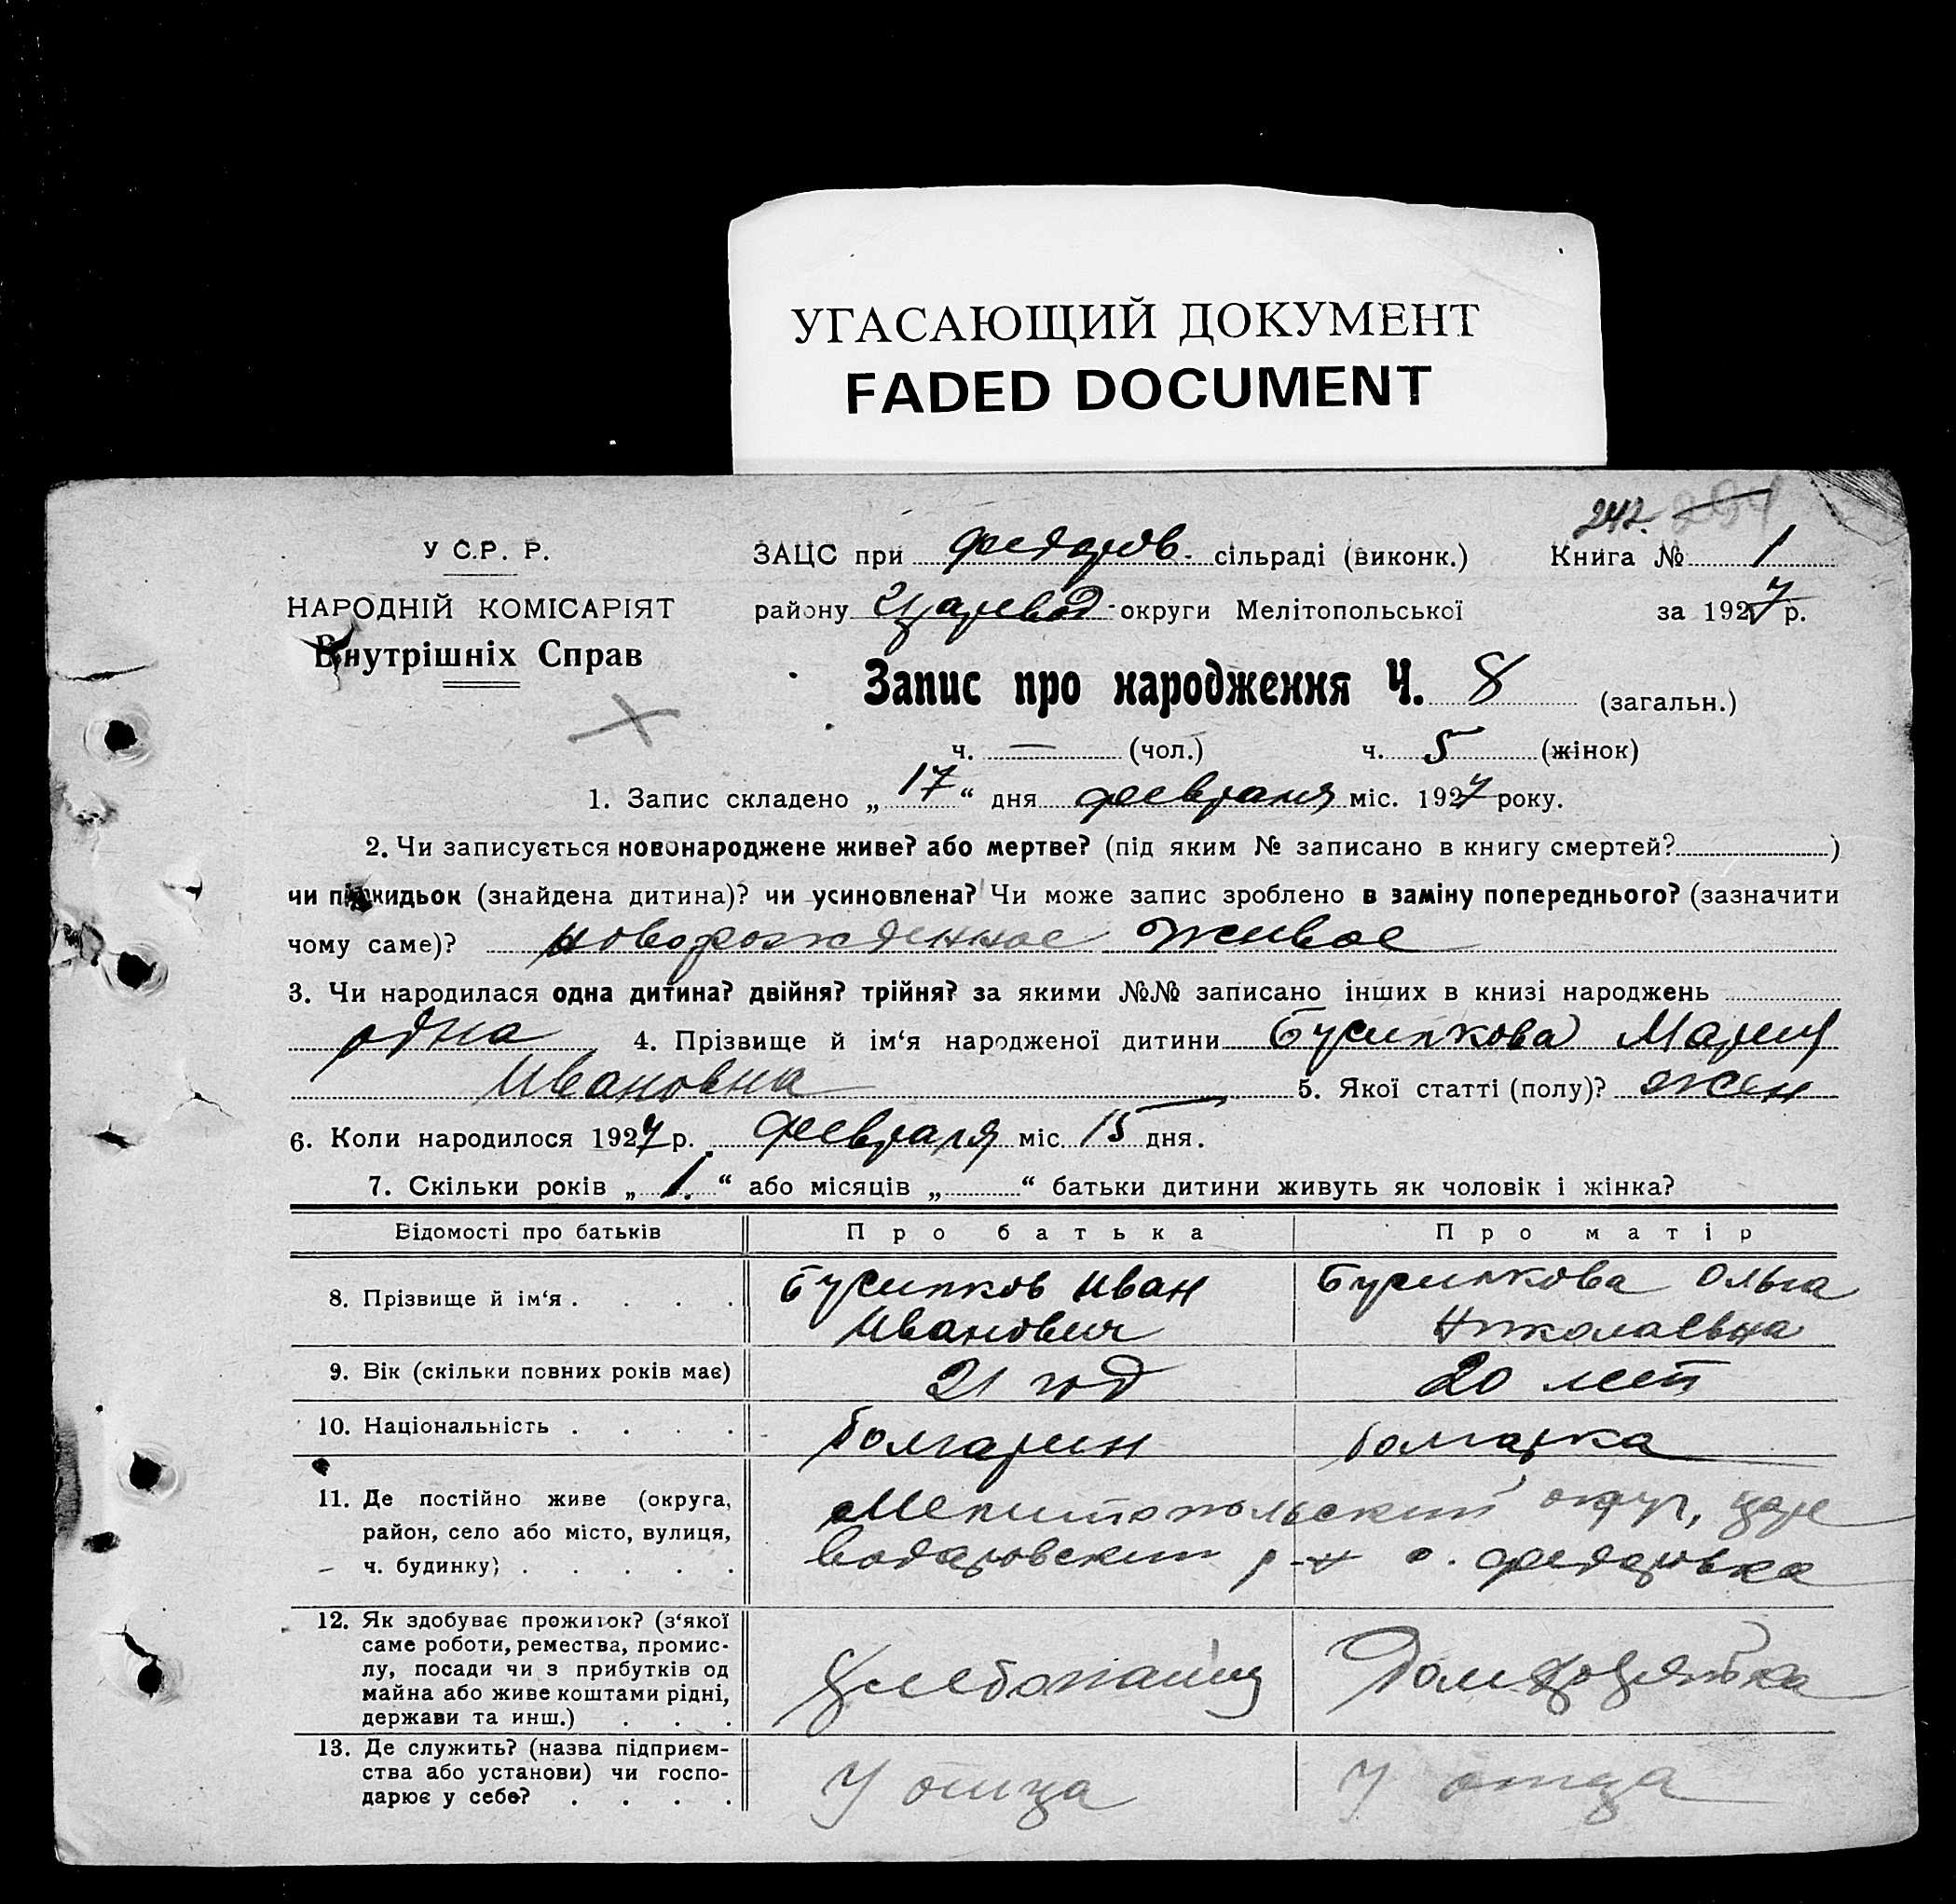 УГАСАЮЩИЙ ДОКУМЕНТ
FADED DOCUMENT
242.
У С.Р. Р. ЗАЦС при Федоров. сільраді (виконк.) Книга № 1
НАРОДНІЙ КОМІСАРІЯТ району Царевод. округи Мелітопольської за 1927 р.
Внутрішніх Справ
Запис про народження Ч. 8 (загальн.)
ч. — (чол.) ч. 5 (жінок)
1. Запис складено „ 17 “ дня февраля міс. 1927 року.
2. Чи записується новонароджене живе? або мертве? (під яким № записано в книгу смертей? )
чи підкидьок (знайдена дитина)? чи усиновлена? Чи може запис зроблено в заміну попереднього? (зазначити
чому саме)? новорожденное живое
3. Чи народилася одна дитина? двійня? трійня? за якими №№ записано інших в книзі народжень
одна 4. Прізвище й ім‘я народженої дитини Бусипкова Мария
Ивановна 5. Якої статті (полу)? жен
6. Коли народилося 1927 р. февраля міс. 15 дня.
7. Скільки років „ 1. “ або місяців „ “ батьки дитини живуть як чоловік і жінка?
Відомості про батьків Про батька Про матір
8. Прізвище й ім‘я . . . . Бусипков Иван Бусипкова Ольга
Иванович Николаевна
9. Вік (скільки повних років має) 21 год 20 лет
10. Національність . . . . болгарин болгарка
11. Де постійно живе (округа, Мелитопольский округ, царе
район, село або місто, вулиця, водаровский р-н с. федоровка
ч. будинку) . . . . .
12. Як здобуває прожиток? (з‘якої
саме роботи, ремества, промис-
лу, посади чи з прибутків од Хлебопашец
майна або живе коштами рідні,
держави та инш.) . . .
13. Де служить? (назва підприєм-
ства або установи) чи госпо- У отца У отца
дарює у себе? . . . .